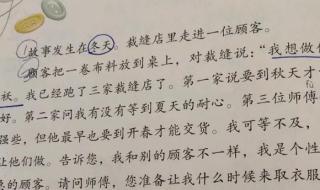 ①故事发生在冬天。裁缝店里走进一位顾客。
②顾客把一卷布料放到桌上，对裁缝说：“我想做件
袄。我已经跑了三家裁缝店了。第一家说要到秋天才
好。第二家问我有没有等到夏天的耐心。第三位师傅
强些，但他最早也要到开春才能交货。我可等不及，
让他们做。告诉您，我和别的顾客不一样，我是个性
的顾客。请问师傅，您准备让我什么时候来取衣服